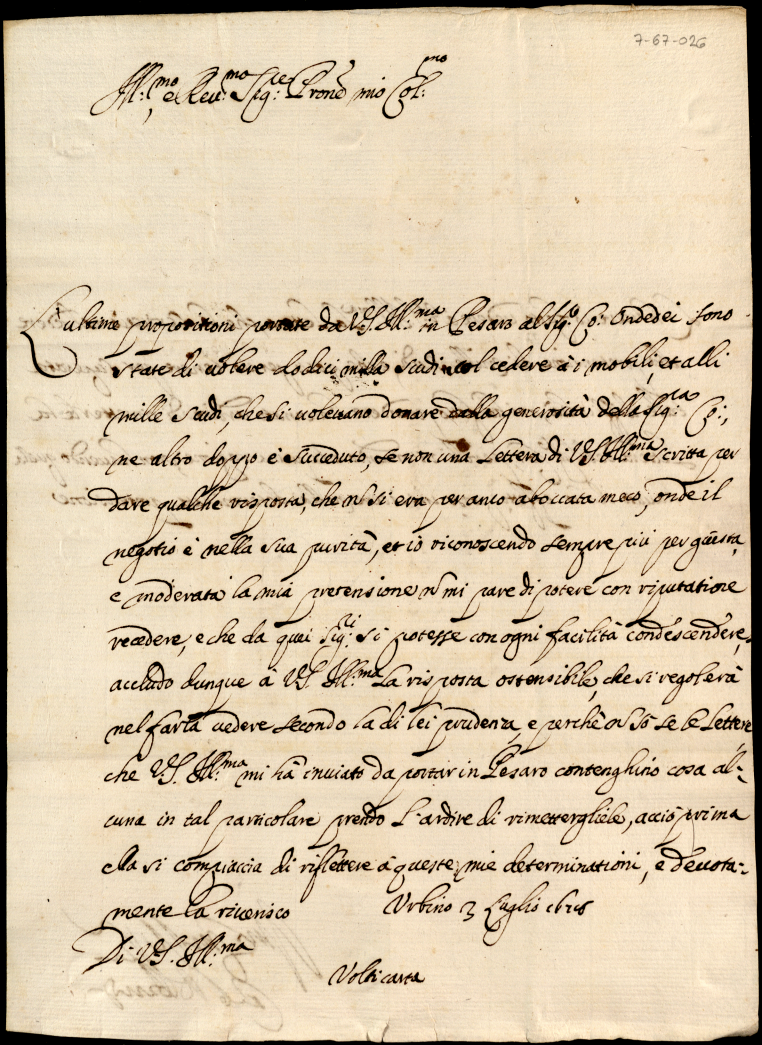 7-67-026
Ill:mo, e Reu:mo Sig:re Prone mio Col:mo
L'ultime propositioni portate da V.S. Ill:ma in Pesaro al Sig:r Co: Ondedei sono
state di volere dodici milla scudi col cedere à i mobili, et alli
mille scudi, che si voleuano donare dalla generosità della Sig:ra Co:,
ne altro doppo è succeduto, se non una lettera di V.S. Ill:ma scritta per
dare qualche risposta, che nõ si era per anco aboccata meco, onde il
negotio è nella sua purità, et io riconoscendo sempre più per giusta,
e moderata la mia pretensione nõ mi pare di potere con riputatione
recedere, e che da quei Sig:ri si potesse con ogni facilità condescendere,
accludo dunque à V.S. Ill:ma la risposta ostensibile, che si regolerà
nel farla uedere secondo la di lei prudenza, e perchè nõ sò se le lettere
che V.S. Ill:ma mi hà inuiato da portar in Pesaro contenghino cosa al:
cuna in tal particolare prendo l'ardire di rimettergliele, acciò prima
ella si compiaccia di riflettere à queste mie determinationi, e deuota:
mente la riuerisco Urbino 3 Luglio
Di V.S. Ill:ma
Volti carta